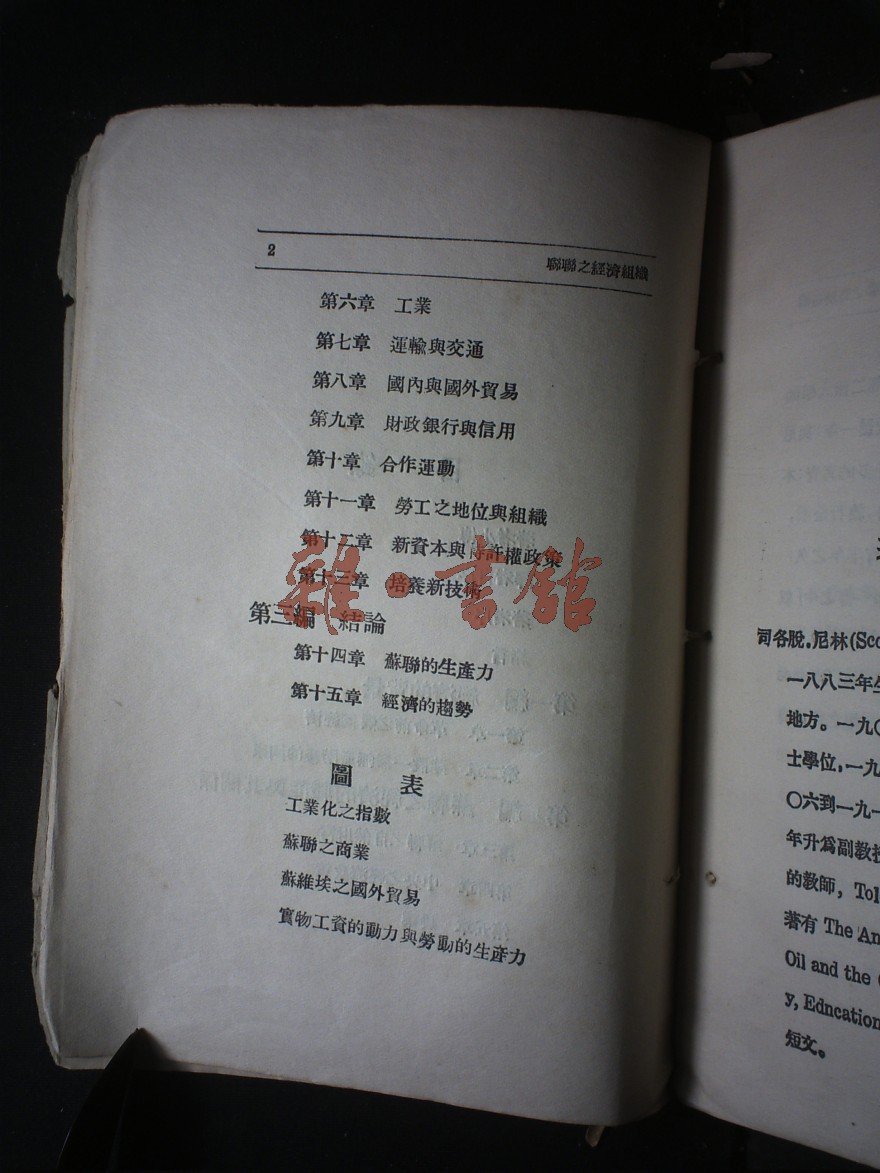 2
聯聯之經濟組織
第六章 工業
第七章 運輸與交通
第八章 國內與國外貿易
第九章 財政銀行與信用
第十章 合作運動
第十一章 勞工之地位與組織
第十二章 新資本與特許權政策
第十三章 培養新技術
第三編 結論
第十四章 蘇聯的生產力
第十五章 經濟的趨勢
圖 表
工業化之指數
蘇聯之商業
蘇維埃之國外貿易
實物工資的動力與勞動的生產力
雜·書舘
司各脫.尼林(Sco
一八八三年生
地方。一九〇
士學位,一九
〇六到一九一
年升爲副教授
的教師, Tol
著有 The An
Oil and the
y, Edncation
短文。